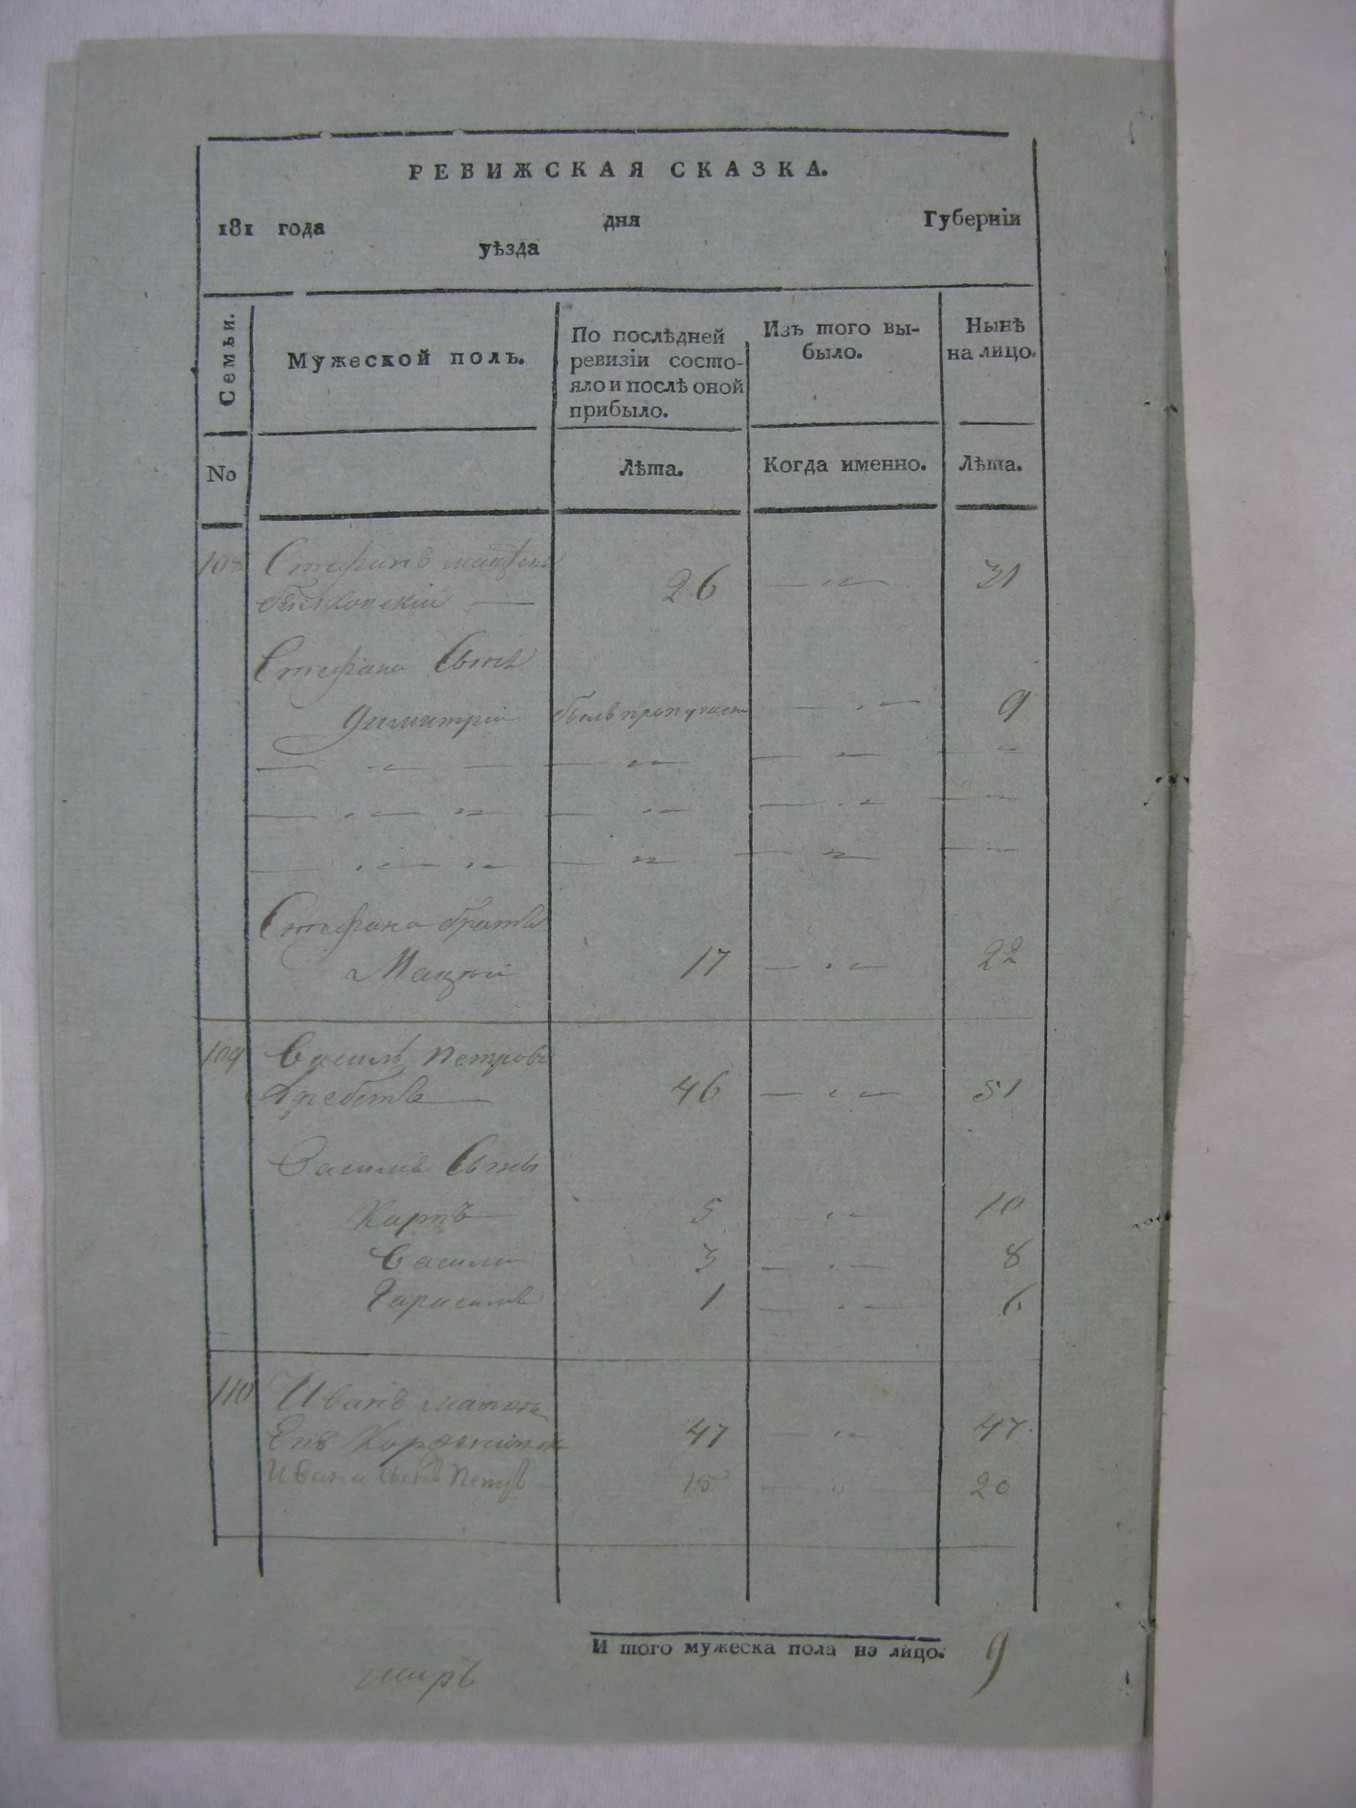 РЕВИЖСКАЯ СКАЗКА.
181 года дня Губерніи
уѣзда
Семьи.
Мужеской полъ.
По послѣдней ревизіи состояло и послѣ оной прибыло.
Изъ того выбыло.
Нынѣ на лицо.
No
Лѣта.
Когда именно.
Лѣта.
108 Стефанъ
26 31
Стефана Сынъ
Димитрій былъ пропущен 9
Стефана братъ
17 22
109 Василь Петровъ
46 51
Василія Сыны
Карпъ 5 10
Василій 3 8
Гарасимъ 1 6
110 Иванъ
47 47
Ивана сынъ Петръ 15 20
И того мужеска пола на лицо. 9